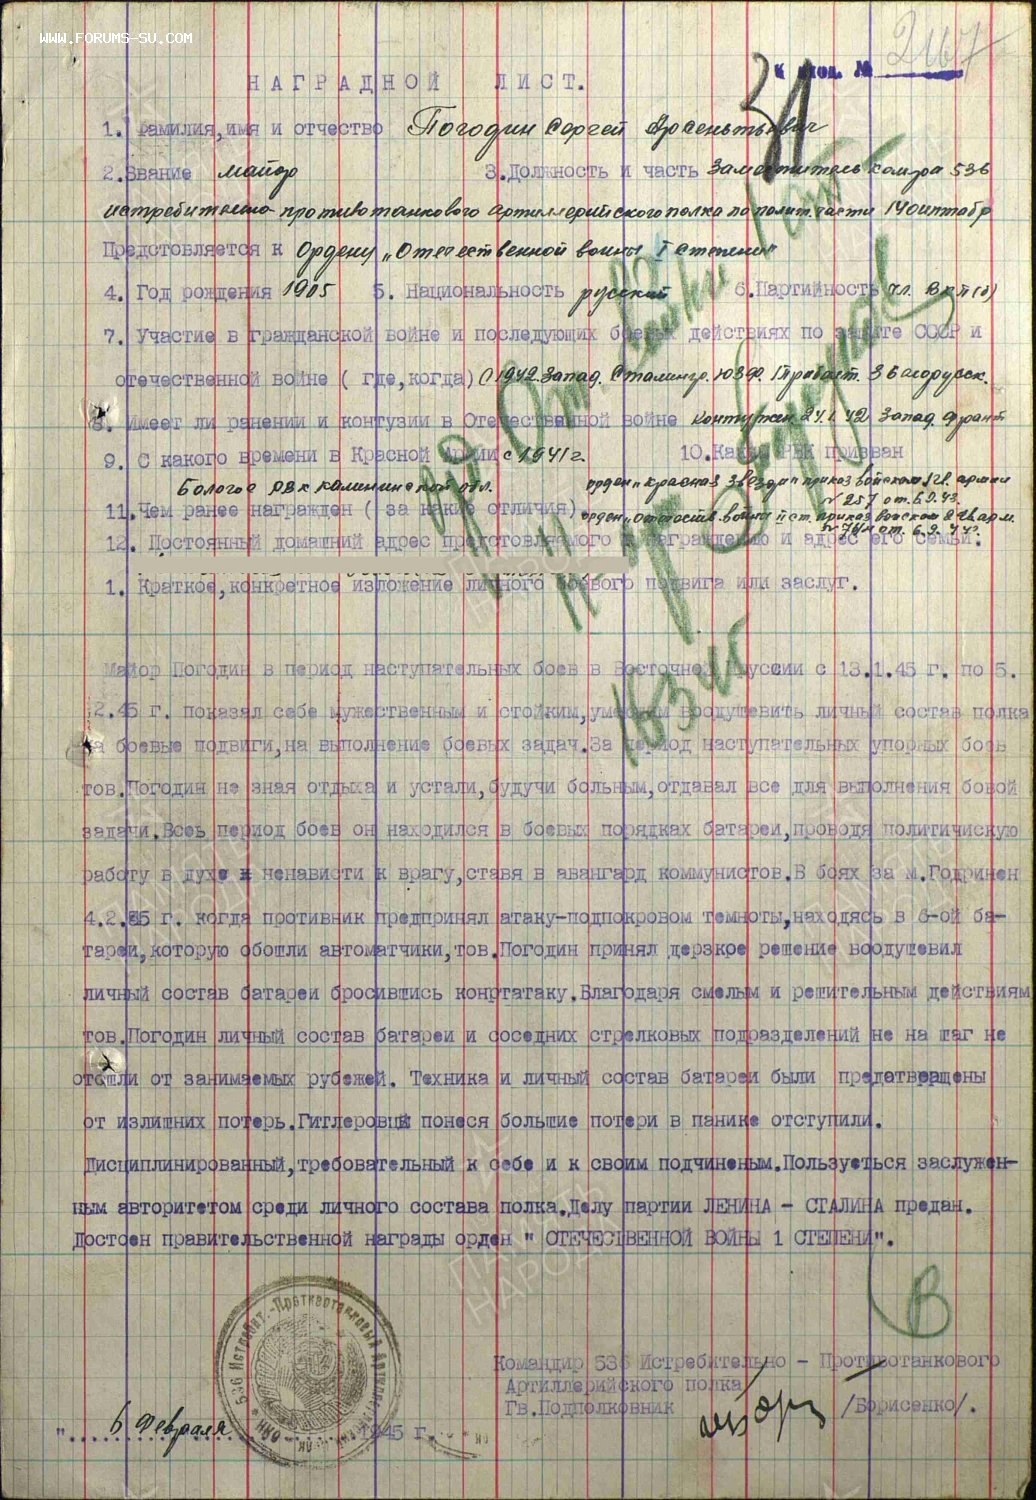 WWW.FORUMS-SU.COM
2167
К вход. №
31
НАГРАДНОЙ ЛИСТ.
1. Фамилия,имя и отчество Погодин Сергей Арсентьевич
2.Звание майор 3.Должность и часть Заместитель ком-ра 536
истребительно-противотанкового артиллерийского полка по полит. части 14 оиптабр
Предстовляется к Ордену „Отечественной войны I степени"
4. Год рождения 1905 5. Национальность русский 6.Партийность чл. ВКП(б)
7. Участие в гражданской войне и последующих боевых действиях по защите СССР и
отечественной войне ( где,когда) С 1942. Запад. Сталингр. ЮЗФ. 1 Прибалт. 3 Белорусск.
8. Имеет ли ранении и контузии в Отечественной войне контужен 24.1.42 Запад. Фронт
9. С какого времени в Красной Армии с 1941 г. 10.Каким РВК призван
Бологое РВК Калининской обл. орден „Красная Звезда" приказ войскам 1 гв. армии
№ 257 от. 6.9.43.
11.Чем ранее награжден ( за какие отличия) орден „Отечеств. война II ст. приказ войскам 2 гв. арм.
12. Постоянный домашний адрес предстовляемого к награждению и адрес его семьи.
1. Краткое,конкретное изложение личного боевого подвига или заслуг.
Майор Погодин в период наступательных боев в Восточной Пруссии с 13.1.45 г. по 5.
2.45 г. показал себе мужественным и стойким,умеющим воодушевить личный состав полка
на боевые подвиги,на выполнение боевых задач.За период наступательных упорных боев
тов.Погодин не зная отдыха и устали,будучи больным,отдавал все для выполнения бовой
задачи.Весь период боев он находился в боевых порядках батареи,проводя политичискую
работу в духе ненависти к врагу,ставя в авангард коммунистов.В боях за м.Годринен
4.2.45 г. когда противник предпринял атаку-подпокровом темноты,находясь в 6-ой ба-
тареи,которую обошли автоматчики,тов.Погодин принял дерзкое решение воодушевил
личный состав батареи бросившись конртатаку.Благодаря смелым и решительным действиям
тов.Погодин личный состав батареи и соседних стрелковых подразделений не на шаг не
отошли от занимаемых рубежей. Техника и личный состав батареи были предотвращены
от излишних потерь.Гитлеровцы понеся большие потери в панике отступили.
Дисциплинированный,требовательный к себе и к своим подчиненым.Пользуеться заслужен-
ным авторитетом среди личного состава полка.Делу партии ЛЕНИНА - СТАЛИНА предан.
Достоен правительственной награды орден " ОТЕЧЕСТВЕННОЙ ВОЙНЫ 1 СТЕПЕНИ".
В
Командир 536 Истребительно - Противотанкового
Артиллерийского полка
Гв.Подполковник /Борисенко/.
" 6 Февраля 1945 г.
536 Истребит.-Противотанковый Артиллерийский
ПАМЯТЬ НАРОДА